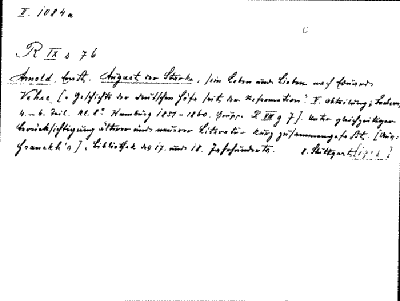 II. 1084a
R IX s 76
Arnold, Ernst. August der Starke, sein Leben und Lieben nach Eduard
Vehse. [= Geschichte der deutschen Höfe seit der Reformation. V. Abteilung: Sachsen,
4.-6. Teil. Kl. 8° Hamburg 18 - 1860. Gruppe R VII g 7]. Unter gleichzeitiger
Berücksichtigung älterer und neuerer Literatur kurz zusammengestellt.
Franckh's]. Bibliothek des 17. und 18. Jahrhunderts. 8. Stuttgart